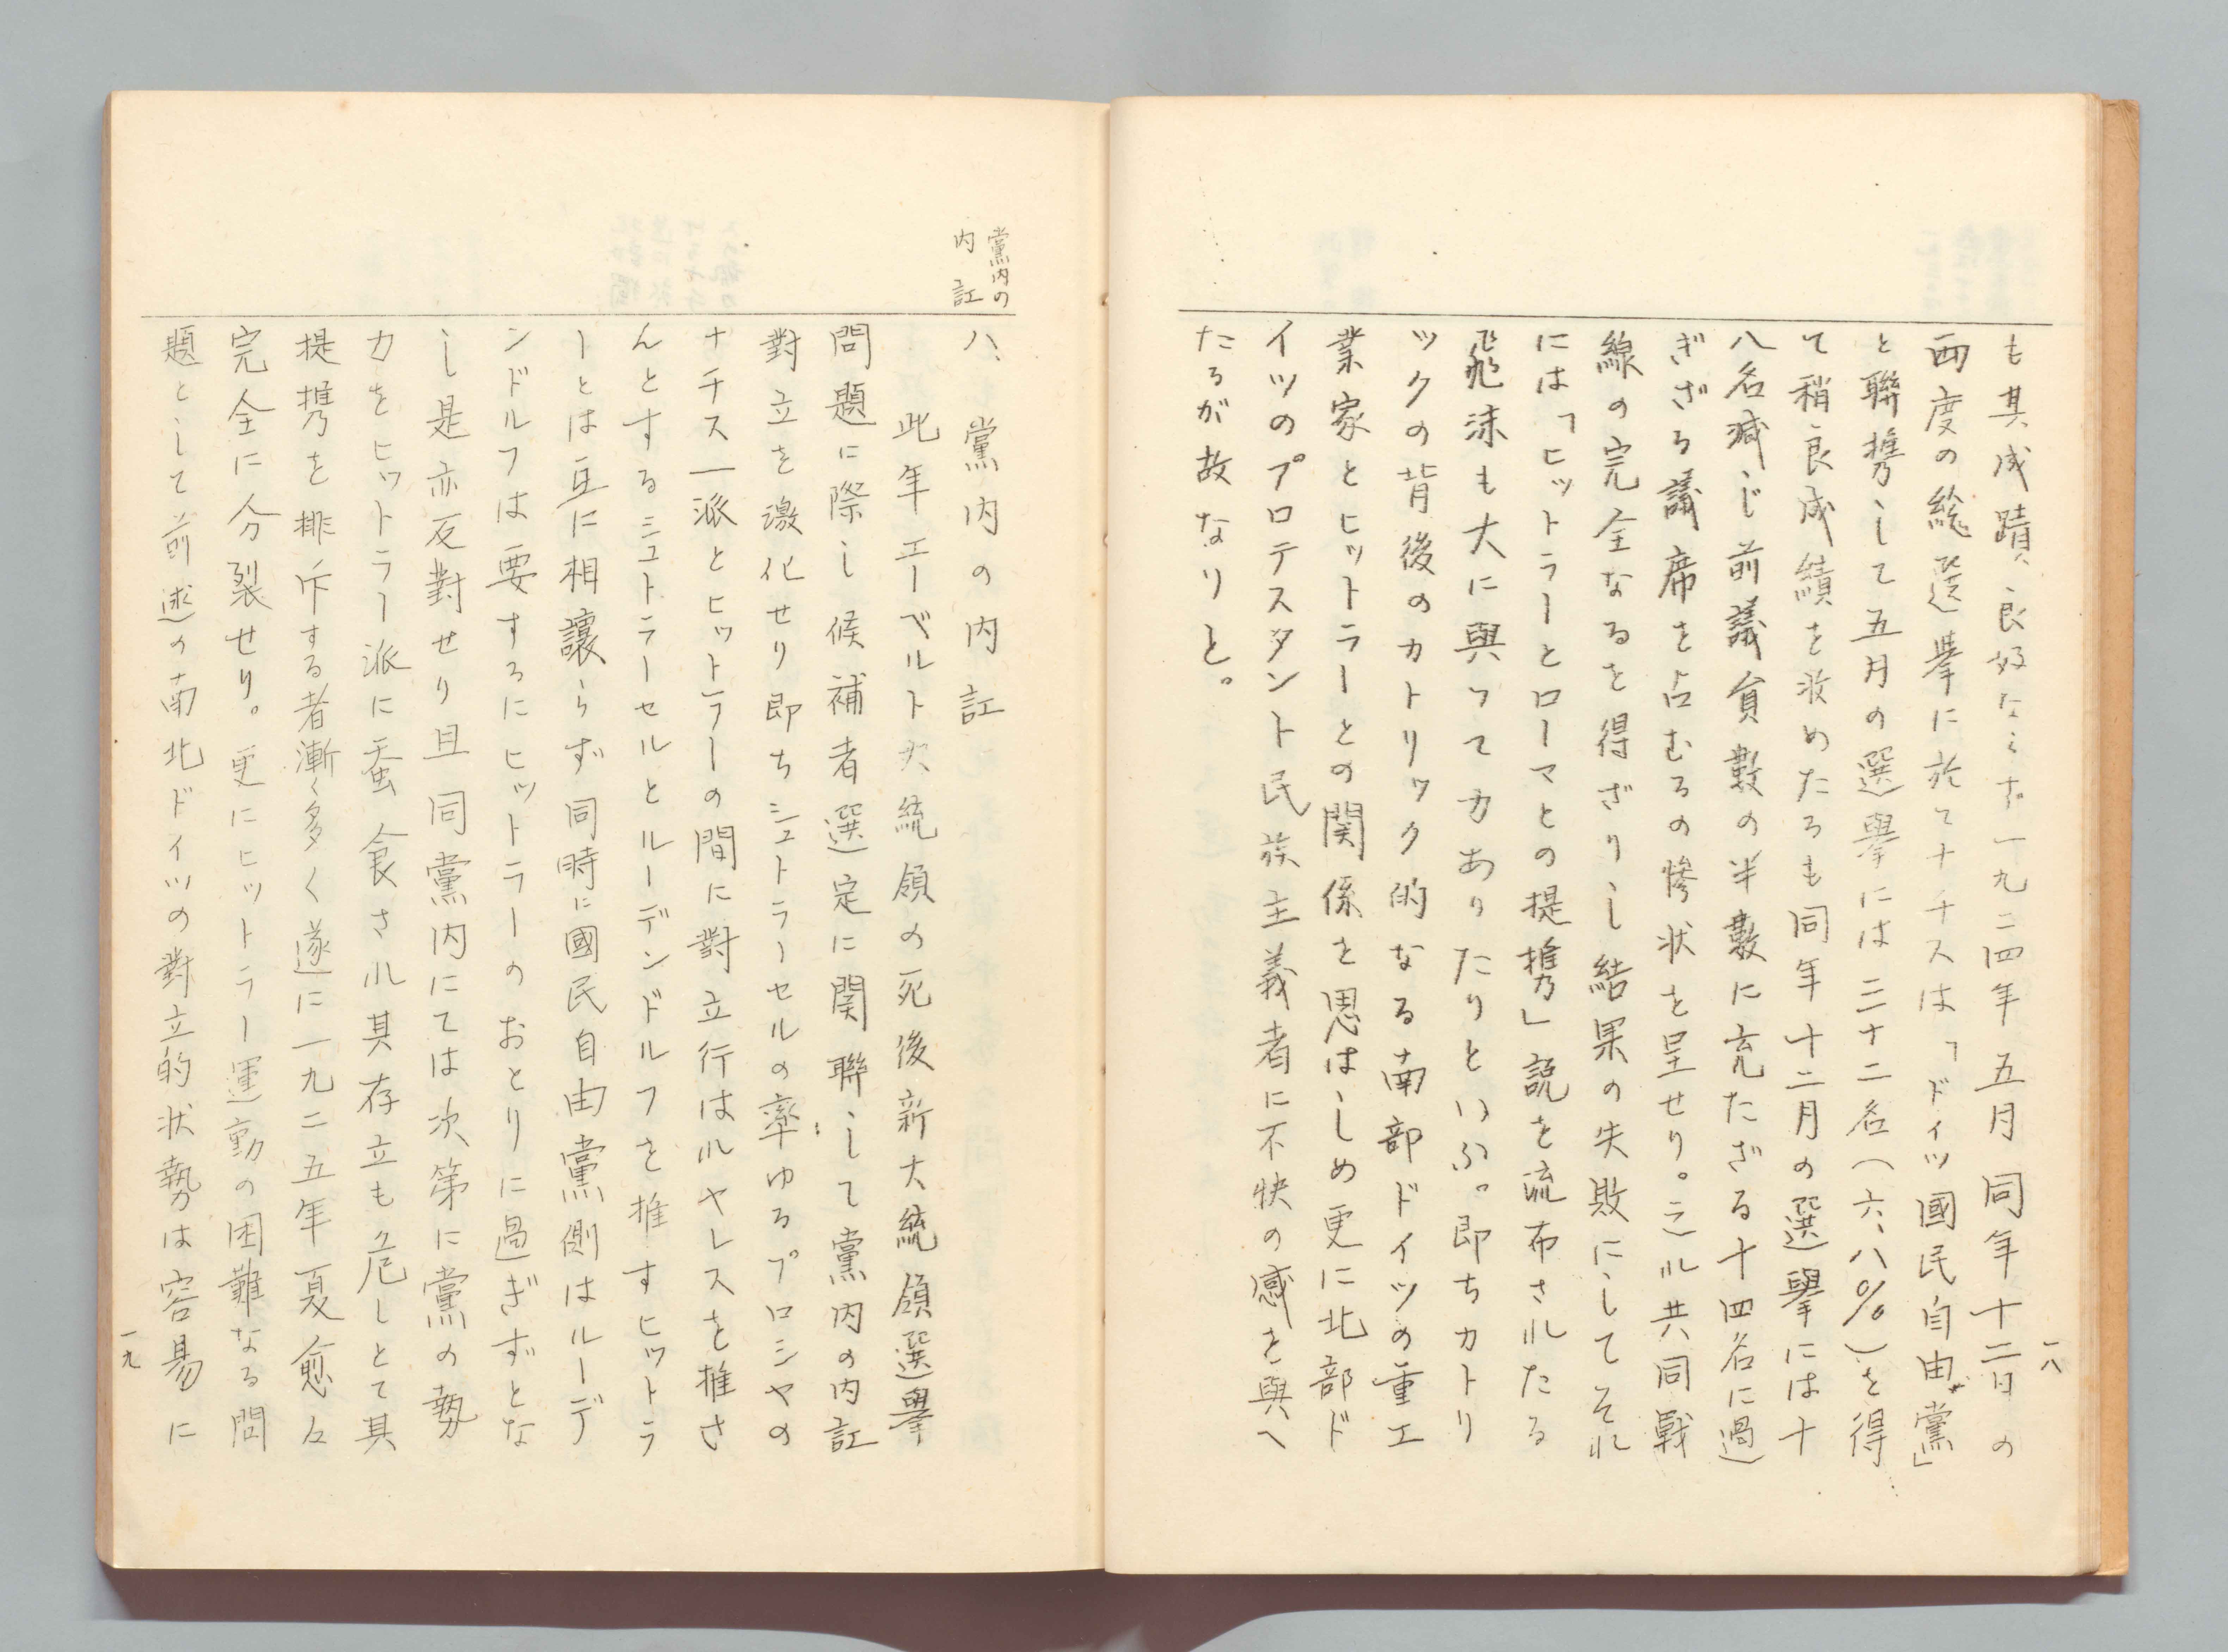 一八
も其成蹟良好ならず一九二四年五月同年十二月の
両度の総選挙に於てナチスは「ドイツ國民自由黨」
と聯携して五月の選擧には三十二名(六、八%)を得
て稍良成績を收めたるも同年十二月の選擧には十
八名減じ前議員數の半數に充たざる十四名に過
ぎざる議席を占むるの惨状を呈せり。これ共同戰
線の完全なるを得ざりし結果の失敗にしてそれ
には「ヒットラーとローマとの提携」説を流布されたる
飛沫も大に與って力ありたりといふ。即ちカトリ
ックの背後のカトリック的なる南部ドイツの重工
業家とヒットラーとの関係を思はしめ更に北部ド
イツのプロテスタント民族主義者に不快の感を與へ
たるが故なりと。
黨内の
内訌
八、黨内の内訌
此年エーベルト大統領の死後新大統領選擧
問題に際し候補者選定に関聯して黨内の内訌
對立を激化せり即ちシュトラーセルの率ゆるプロシヤの
ナチス一派とヒットラーの間に對立行はれヤレスを推さ
んとするシュトラーセルとルーデンドルフを推すヒットラ
ーとは互に相讓らず同時に國民自由黨側はルーデ
ンドルフは要するにヒットラーのおとりに過ぎずとな
し是亦反對せり且同黨内にては次第に黨の勢
力をヒットラー派に蚕食され其存立も危しとて其
提携を排斥する者漸く多く遂に一九二五年夏愈々
完全に分裂せり。更にヒットラー運動の困難なる問
題として前述の南北ドイツの對立的状勢は容易に
一九